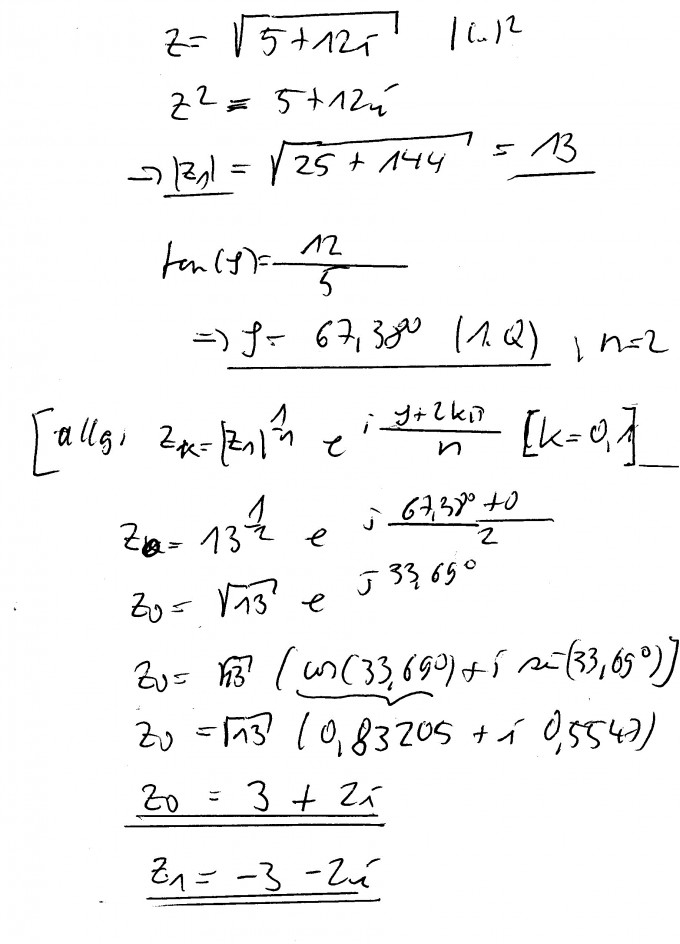 z = √(5+12i) |(..)²
z² = 5+12i
→ |z₁| = √(25 + 144) = 13
tan(φ) = 12/5
⇒ φ = 67,38° (1.Q) , n=2
[allg. z_k = |z₁|^(1/n) e^(i (φ+2kπ)/n) [k=0,1]
z₀ = 13^(1/2) e^(i (67,38°+0)/2)
z₀ = √13 e^(i 33,69°)
z₀ = √13 (cos(33,69°) + i sin(33,69°))
z₀ = √13 (0,83205 + i 0,5547)
z₀ = 3 + 2i
z₁ = -3 -2i